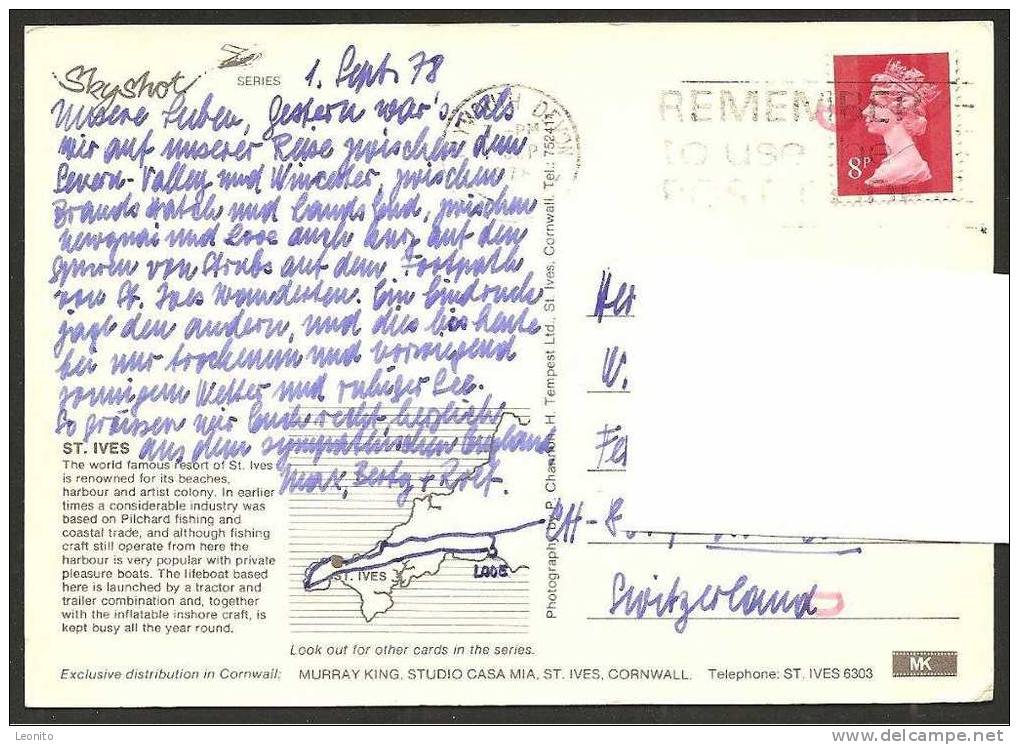 Skyshot SERIES
1. Sept. 78
Unsere Lieben, Gestern war's, als
wir auf unserer Reise zwischen dem
Severn-Valley und Wincester, zwischen
Brands Hatch und Lands End, zwischen
Newquai und Looe auch kurz auf den
Spuren von Strubs auf dem Footpath
von St. Ives wanderten. Ein Eindruck
jagt den andern, und dies bis heute
bei nur trockenem und vorwiegend
sonnigem Wetter und ruhiger See.
So grüssen wir Euch recht herzlich
aus dem sympathischen England
Max, Berty + Rolf.
ST. IVES
The world famous resort of St. Ives
is renowned for its beaches,
harbour and artist colony. In earlier
times a considerable industry was
based on Pilchard fishing and
coastal trade, and although fishing
craft still operate from here the
harbour is very popular with private
pleasure boats. The lifeboat based
here is launched by a tractor and
trailer combination and, together
with the inflatable inshore craft, is
kept busy all the year round.
ST. IVES
LOOE
Look out for other cards in the series.
Photography by P. Channon, H. Tempest Ltd., St. Ives, Cornwall. Tel.: 752411
DEVON
PM
REMEMBER
to use the
POST CODE
8P
Her
W.
Fe
CH-8
Switzerland
Exclusive distribution in Cornwall: MURRAY KING, STUDIO CASA MIA, ST. IVES, CORNWALL. Telephone: ST. IVES 6303
MK
Leonito
www.delcampe.net